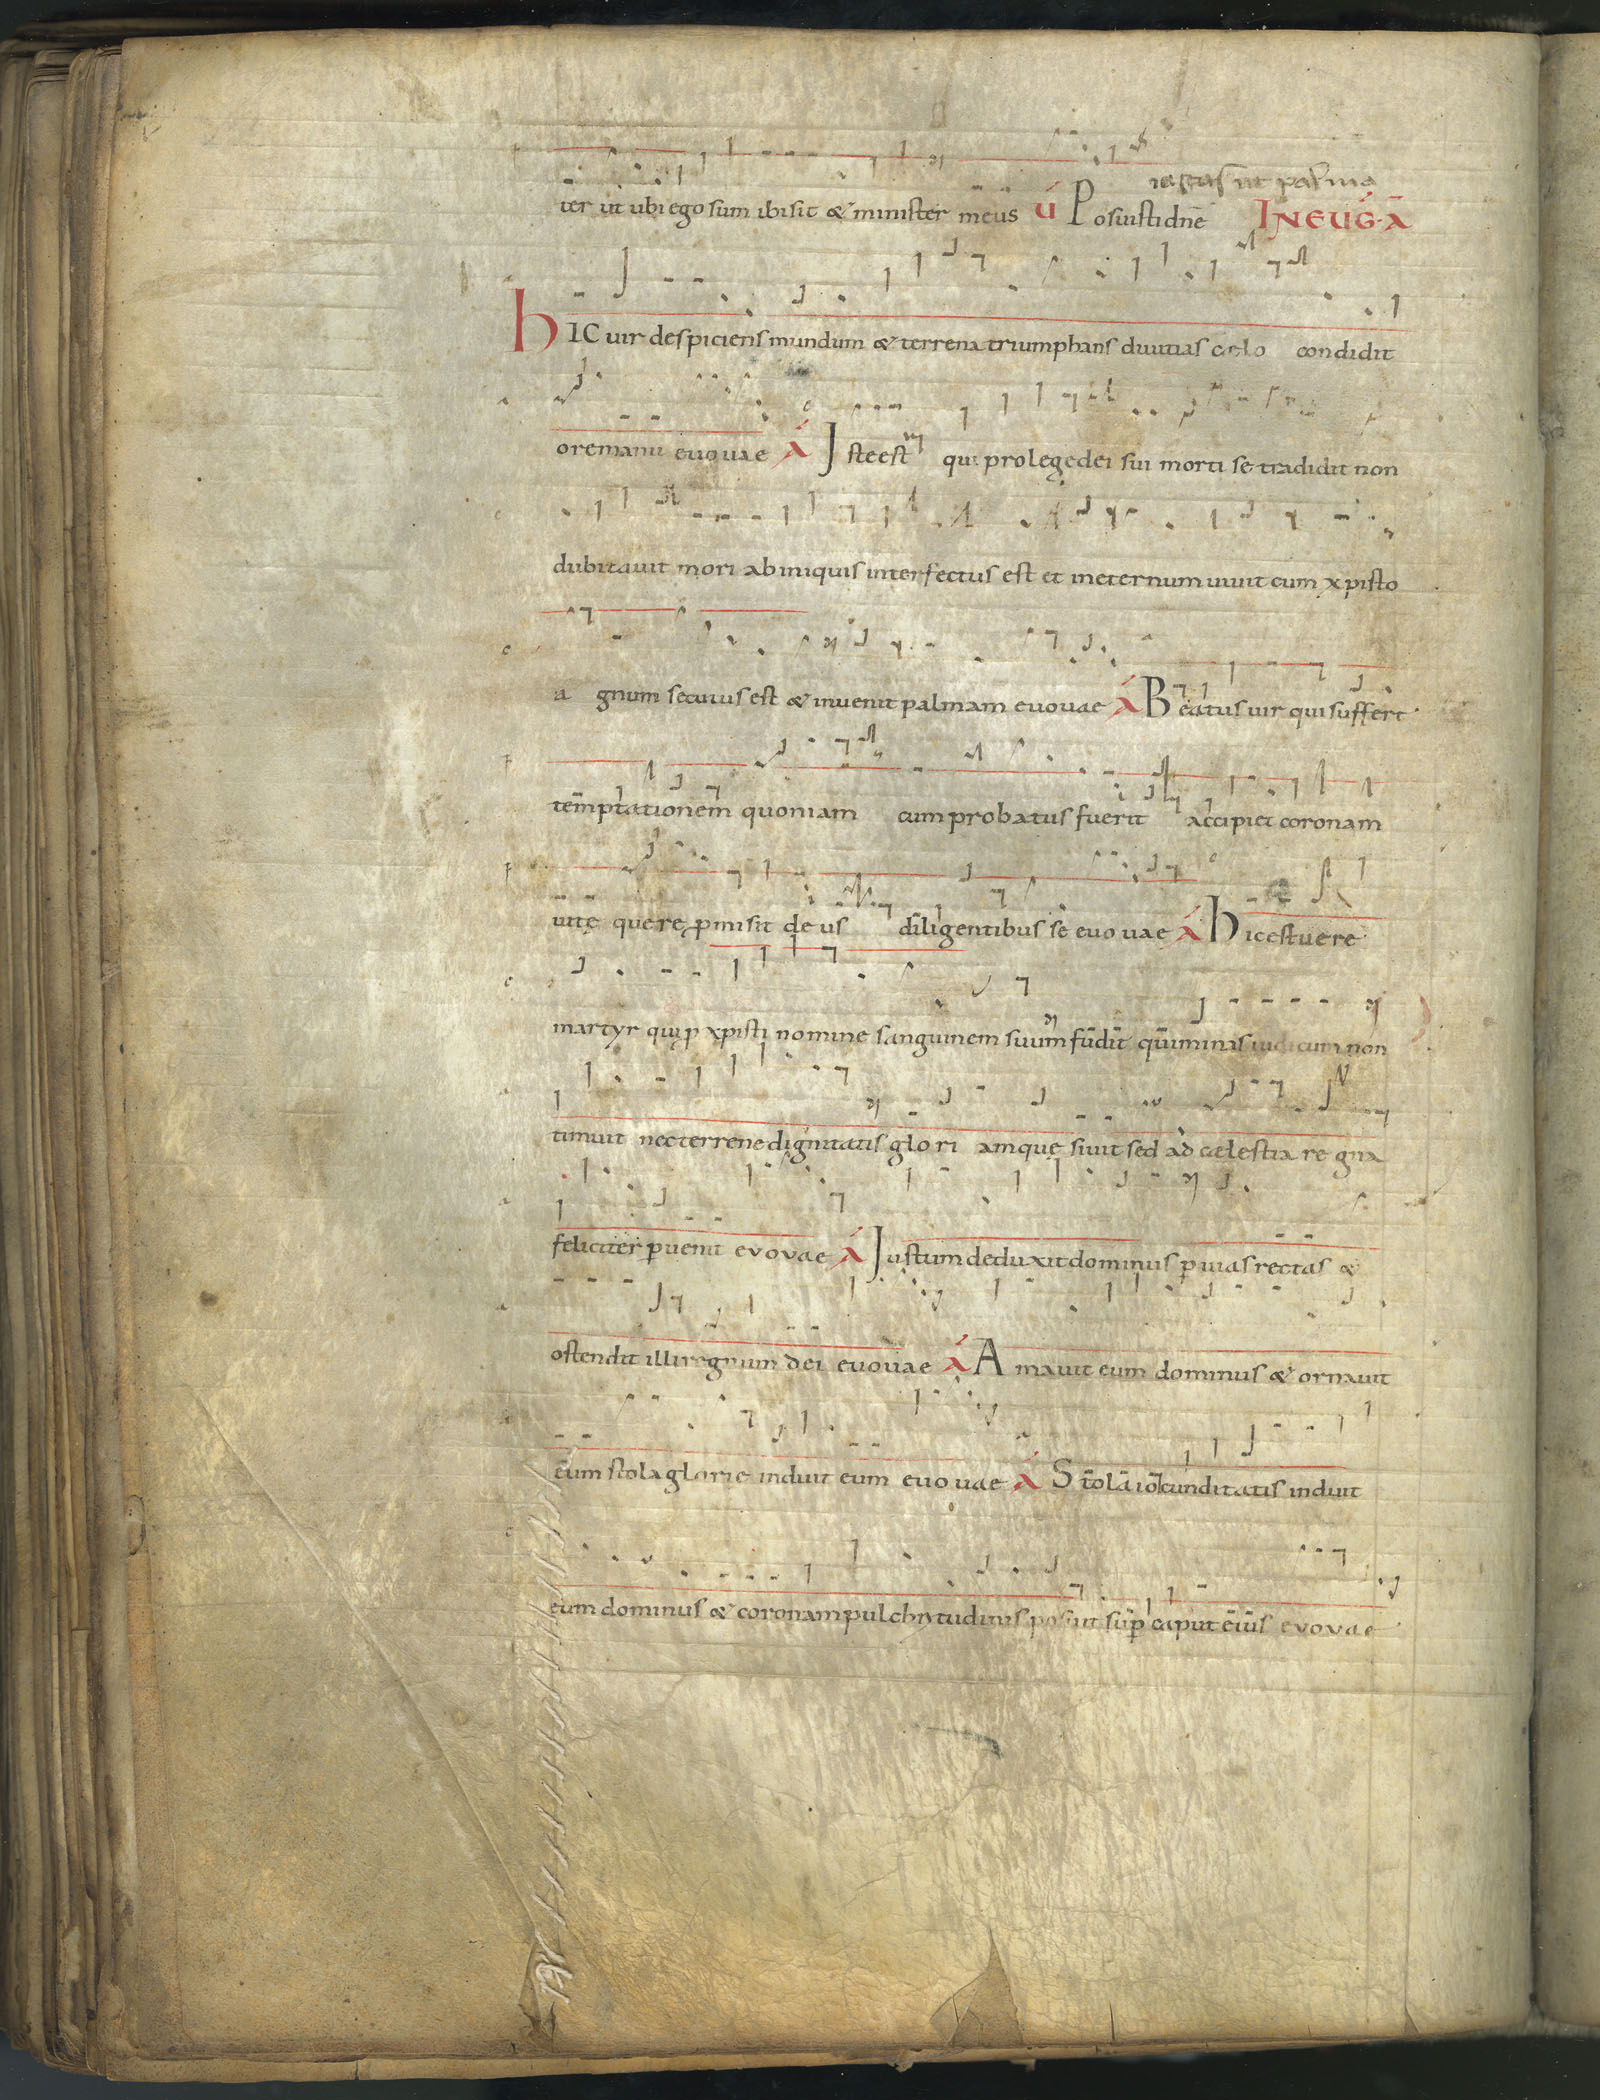 iustus ut palma
ter ut ubi ego sum ibi sit & minister meus ú Posuisti dnē IN EUG·Ā
HIC uir despiciens mundum & terrena triumphans diuitias celo condidit
ore manu euouae Á Iste est qui pro lege dei sui morti se tradidit non
dubitauit mori ab iniquis interfectus est et in eternum uiuit cum xpisto
agnum secutus est & inuenit palmam euouae Á Beatus uir qui suffert
temptationem quoniam cum probatus fuerit accipiet coronam
uitę quere pmisit deus diligentibus se euouae Á Hic est uere
martyr qui p xpisti nomine sanguinem suum fudit qui minas iudicum non
timuit nec terrene dignitatis gloriamquę siuit sed ad cælestia regna
feliciter puenit euouae Á Iustum deduxit dominus p uias rectas &
ostendit illi regnum dei euouae Á Amauit eum dominus & ornauit
eum stola glorie induit eum euouae Á Stola iocunditatis induit
eum dominus & coronam pulchrytudinis posuit sup caput eius euouae